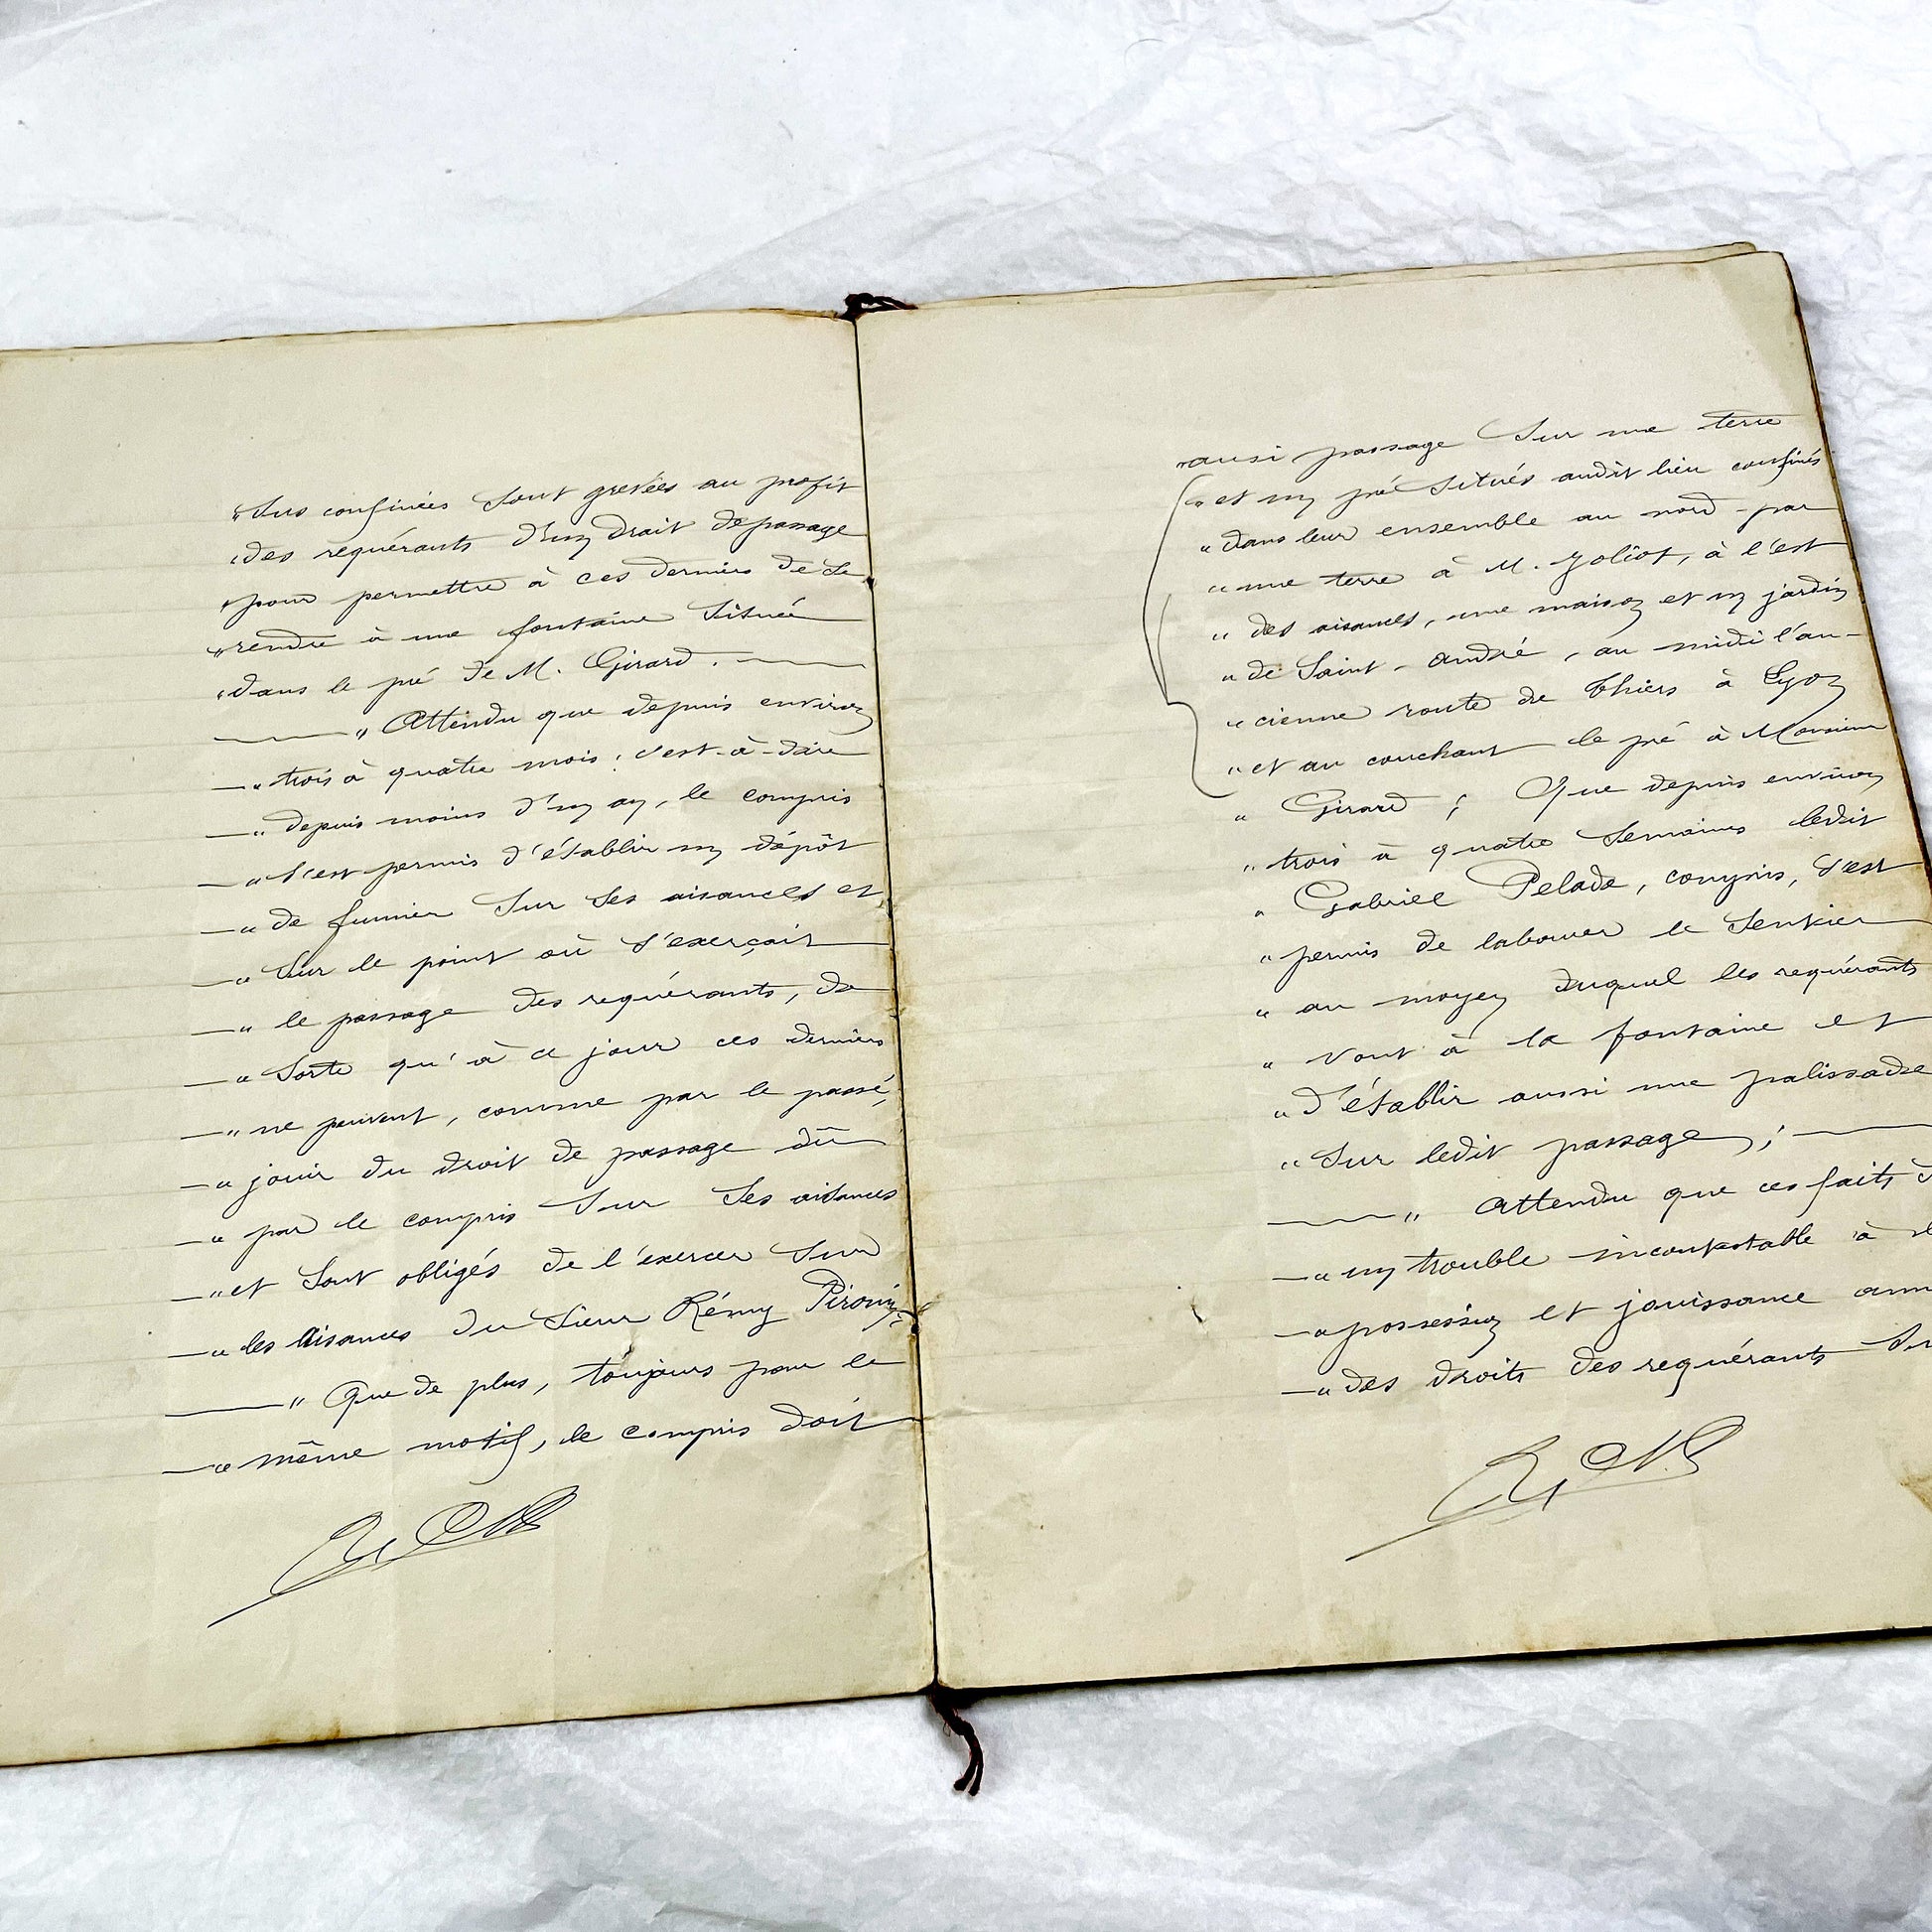 "Sus confinées sont grevées au profit
"des requérants d'un droit de passage
"pour permettre à ces derniers de se
"rendre à une fontaine située
"dans le pré de M. Girard.
" Attendu que depuis environ
—" trois à quatre mois, c'est-à-dire
—" depuis moins d'un an, le compris
—" s'est permis d'établir un dépôt
—" de fumier sur ses aisances et
—" sur le point où s'exerçait
—" le passage des requérants, de
—" sorte qu'à ce jour ces derniers
—" ne peuvent, comme par le passé,
—" jouir du droit de passage dû
—" par le compris sur ses aisances
—" et sont obligés de l'exercer sur
—" les aisances du sieur Rémy Pironin;
—" Que de plus, toujours pour le
—" même motif, le compris doit
"aussi passage sur une terre
"et un pré situés audit lieu confinés
"dans leur ensemble au nord par
"une terre à M. Joliot, à l'est
"des aisances, une maison et un jardin
"de Saint-André, au midi l'an-
"cienne route de Thiers à Lyon
"et au couchant le pré à Monsieur
" Girard ; Que depuis environ
"trois à quatre semaines ledit
" Gabriel Pelade, compris, s'est
"permis de labourer le sentier
" au moyen duquel les requérants
" vont à la fontaine et
"d'établir aussi une palissade
"sur ledit passage;
—" Attendu que ces faits
—" un trouble incontestable à
—" possession et jouissance
—" des droits des requérants